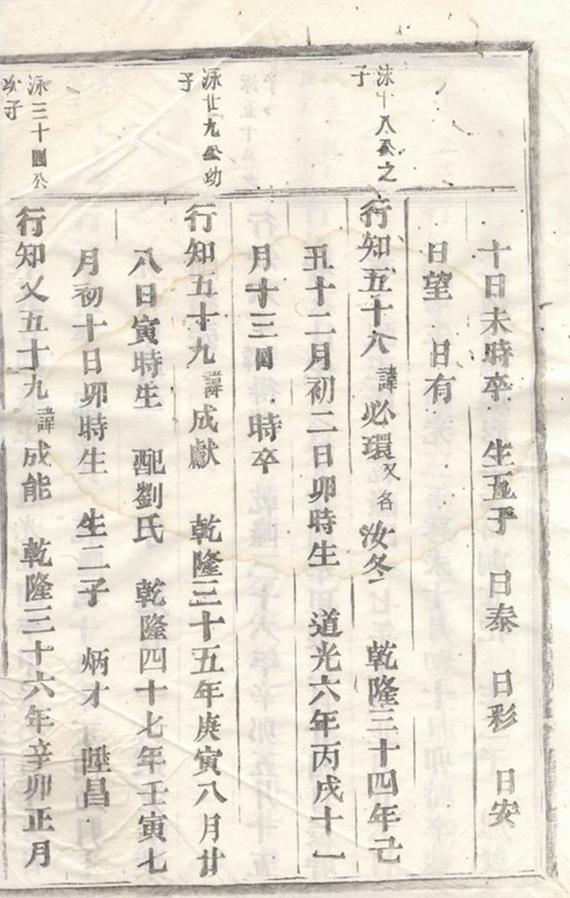 十日未時卒　生五子　日泰　日彩　日安
日望　日有
泳十八公之
子
行知五十八諱必環又名汝冬　乾隆三十四年己
丑十二月初二日卯時生　道光六年丙戌十一
月十三日時卒
泳廿九公幼
子
行知五十九諱成獻　乾隆三十五年庚寅八月廿
八日寅時生　配劉氏　乾隆四十七年壬寅七
月初十日卯時生　生二子　炳才　陞昌
泳三十四公
次子
行知又五十九諱成能　乾隆三十六年辛卯正月